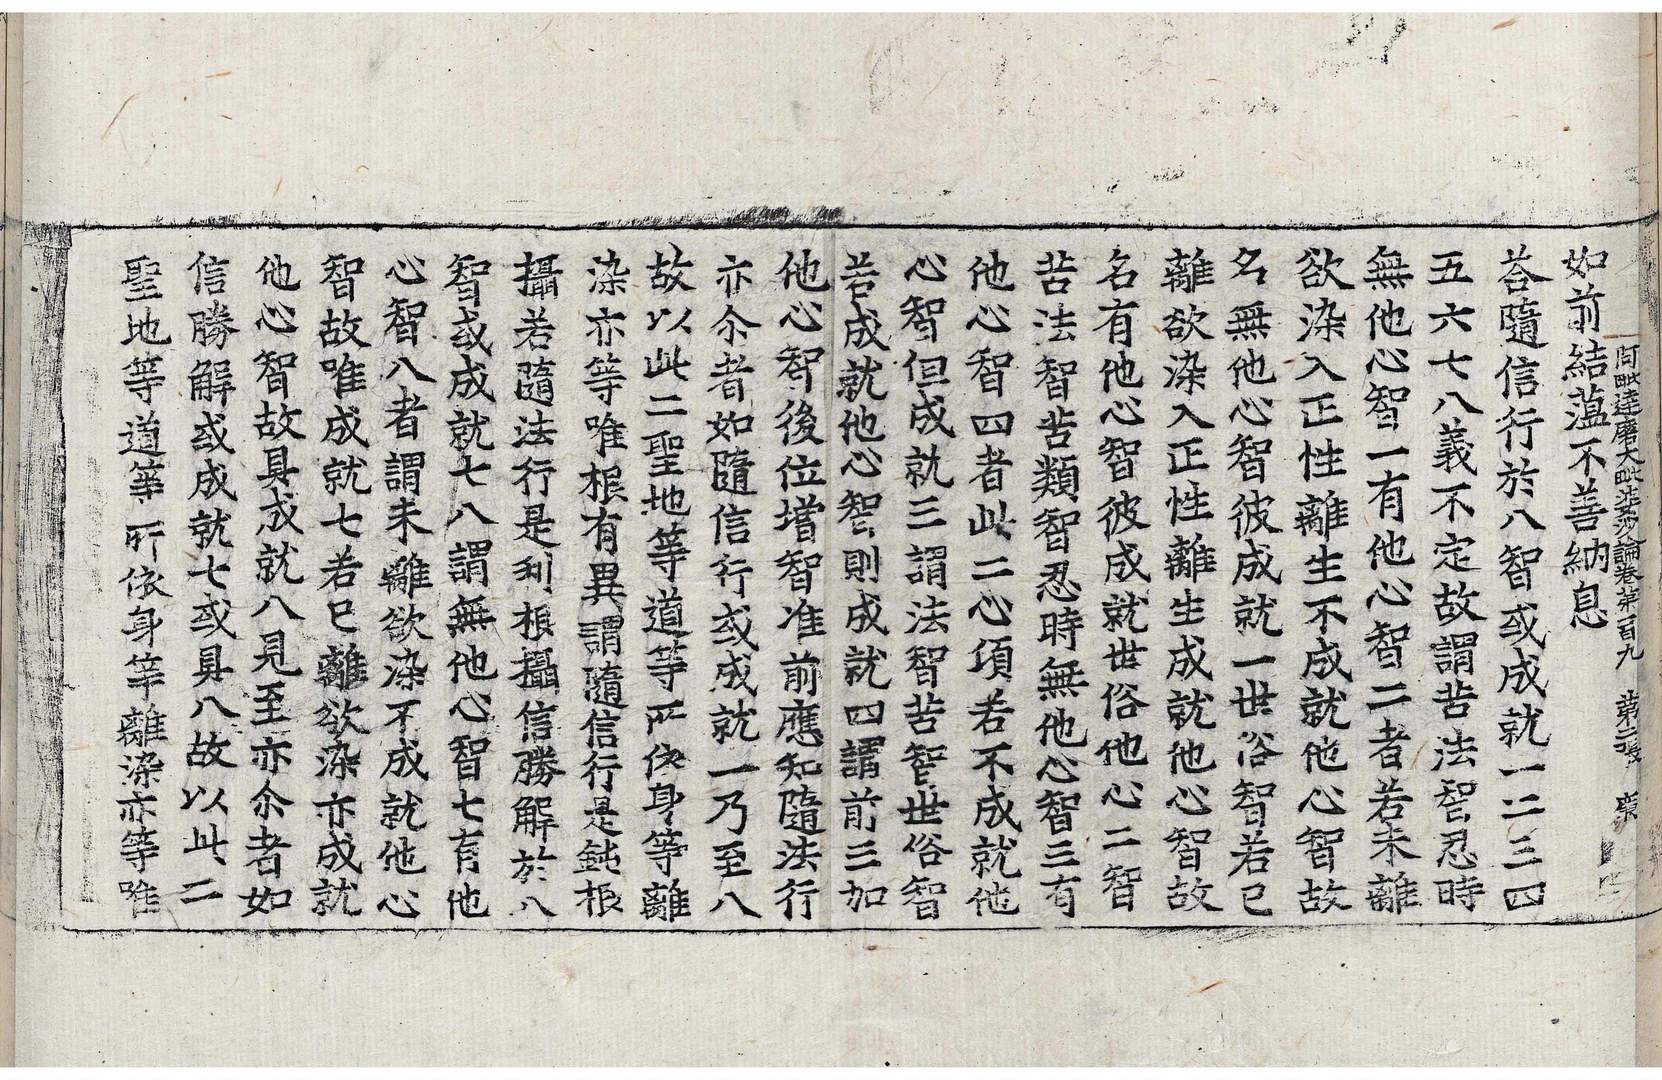 阿毗達磨大毗婆沙論卷第一百九 第二張
如前結蘊不善納息
荅隨信行於八智或成就一二三四
五六七八義不定故謂苦法智忍時
無他心智一有他心智二者若未離
欲染入正性離生不成就他心智故
名無他心智彼成就一世俗智若已
離欲染入正性離生成就他心智故
名有他心智彼成就世俗他心二智
苦法智苦類智忍時無他心智三有
他心智四者此二心頃若不成就他
心智但成就三謂法智苦智世俗智
若成就他心智則成就四謂前三加
他心智後位增智准前應知隨法行
亦尒者如隨信行或成就一乃至八
故以此二聖地等道等所依身等離
染亦等唯根有異謂隨信行是鈍根
攝若隨法行是利根攝信勝解於八
智或成就七八謂無他心智七有他
心智八者謂未離欲染不成就他心
智故唯成就七若已離欲染亦成就
他心智故具成就八見至亦尒者如
信勝解或成就七或具八故以此二
聖地等道等所依身等離染亦等唯